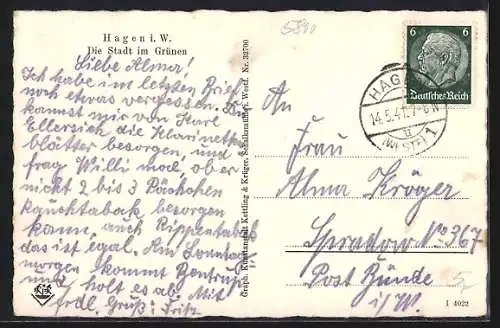 Hagen i. W.
Die Stadt im Grünen
Liebe Alma!
Ich habe im letzten Brief
noch etwas vergessen. Du
kannst mir von Karl
Ellersiek die Klarinetten
blätter besorgen, und
frag Willi mal, ob er
nicht 2 bis 3 Päckchen
Kautabak besorgen
kann, auch Rippentabak
das ist egal. Am Sonntag
morgen kommt
und holt es ab. Mit
frdl. Gruß: Fritz
Graph. Kunstanstalt Kettling & Krüger, Schalksmühle i. Westf. Nr. 32700
5800
6 6
Deutsches Reich
HAGEN
14.5.41.7-8 N
(WESTF) 1
An
Frau
Alma Kröger
Spradow No 367
Post Bünde
i/W.
I 4022